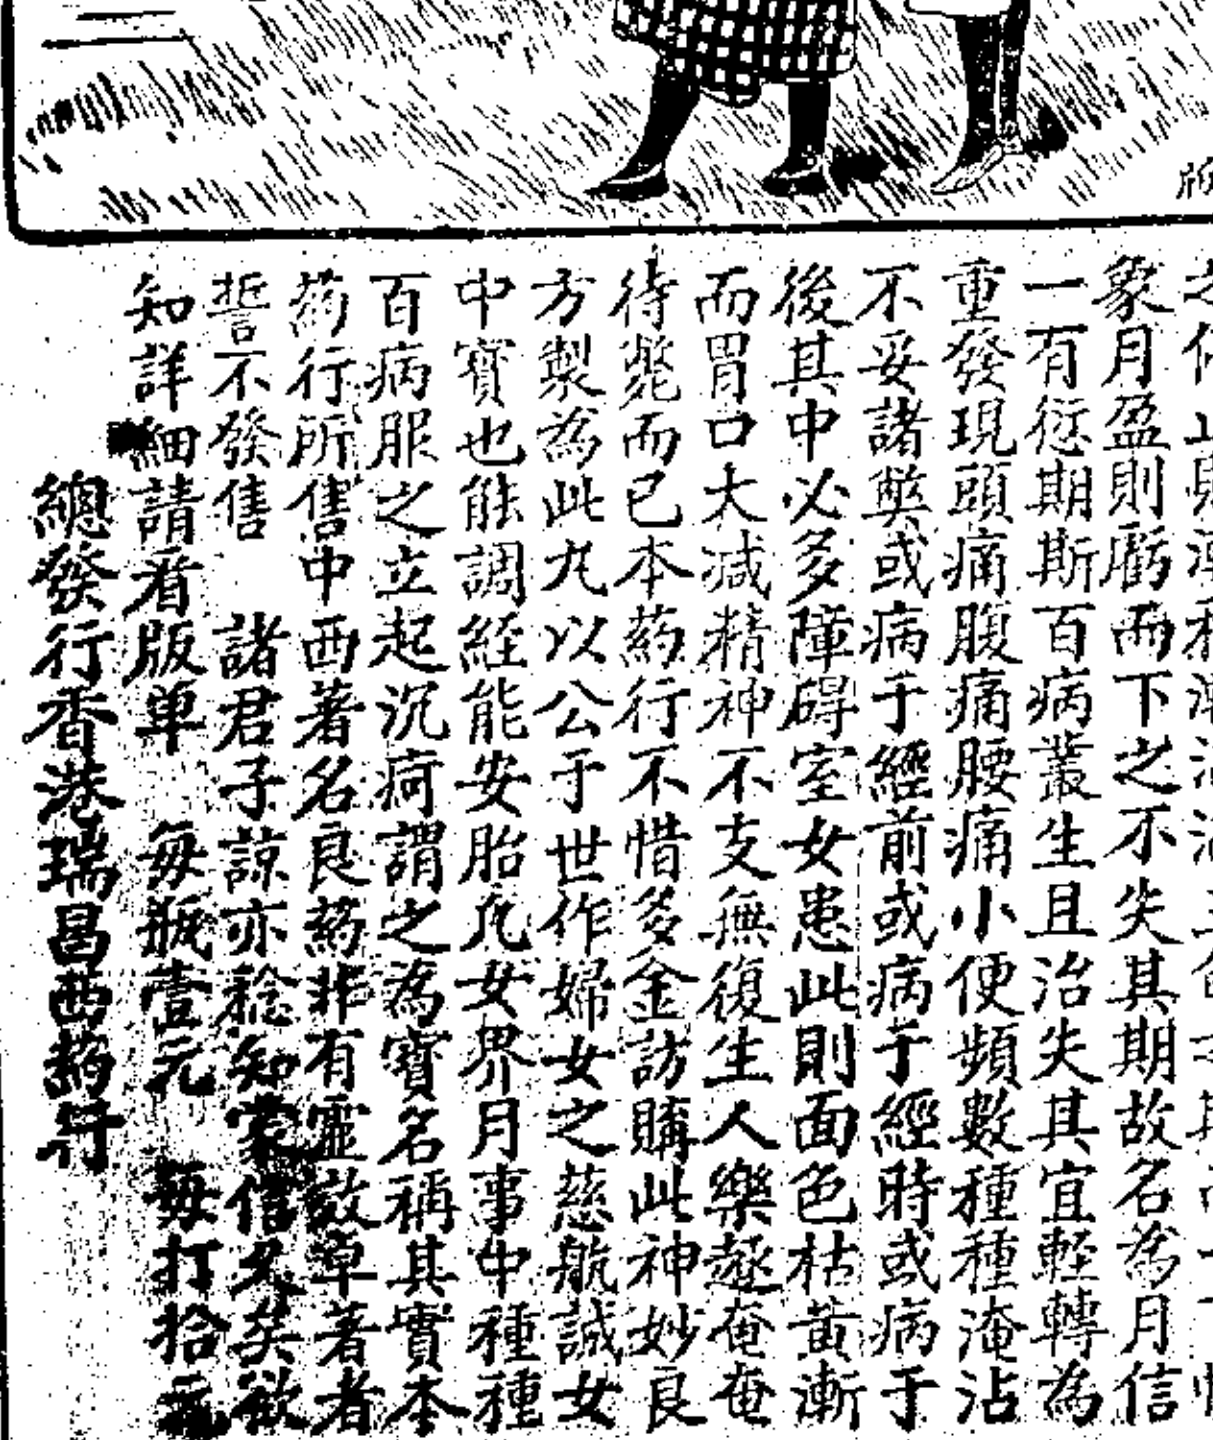 象月盈則虧而下之不失其期故名為月信
一有愆期斯百病叢生且治失其宜輕轉為
重發現頭痛腹痛腰痛小便頻數種種淹沾
不妥諸弊或病于經前或病于經時或病于
後其中必多障碍室女患此則面色枯黃漸
而胃口大減精神不支無復生人樂趣奄奄
待斃而已本葯行不惜多金訪購此神妙良
方製為此丸以公于世作婦女之慈航誠女
中寶也能調經能安胎凢女界月事中種種
百病服之立起沉疴謂之為寶名稱其實本
葯行所售中西著名良葯非有靈效卓著者
誓不發售 諸君子諒亦稔知蒙信久矣欲
知詳細請看版單 每瓶壹元 每打拾元
總發行香港瑞昌西葯行